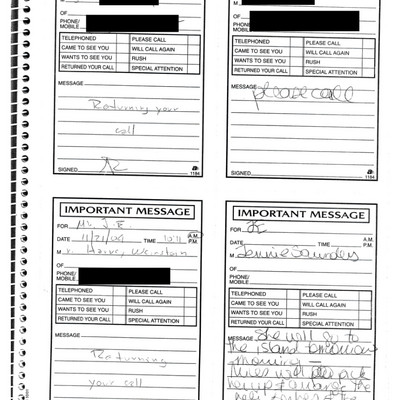 OF
PHONE/
MOBILE
TELEPHONED PLEASE CALL
CAME TO SEE YOU WILL CALL AGAIN
WANTS TO SEE YOU RUSH
RETURNED YOUR CALL SPECIAL ATTENTION
MESSAGE
Returning your
call
SIGNED
1184
PHONE/
MOBILE
TELEPHONED PLEASE CALL
CAME TO SEE YOU WILL CALL AGAIN
WANTS TO SEE YOU RUSH
RETURNED YOUR CALL SPECIAL ATTENTION
MESSAGE
please call
SIGNED
1184
IMPORTANT MESSAGE
FOR Mr. J.E.
DATE TIME A.M.
P.M.
M
OF
PHONE/
MOBILE
TELEPHONED PLEASE CALL
CAME TO SEE YOU WILL CALL AGAIN
WANTS TO SEE YOU RUSH
RETURNED YOUR CALL SPECIAL ATTENTION
MESSAGE
Returning
your call
IMPORTANT MESSAGE
FOR JE
A.M.
P.M.
Jennie Saunders
OF
PHONE/
MOBILE
TELEPHONED PLEASE CALL
CAME TO SEE YOU WILL CALL AGAIN
WANTS TO SEE YOU RUSH
RETURNED YOUR CALL SPECIAL ATTENTION
MESSAGE She will go to
the island tomorrow
morning
will pick
her up
the